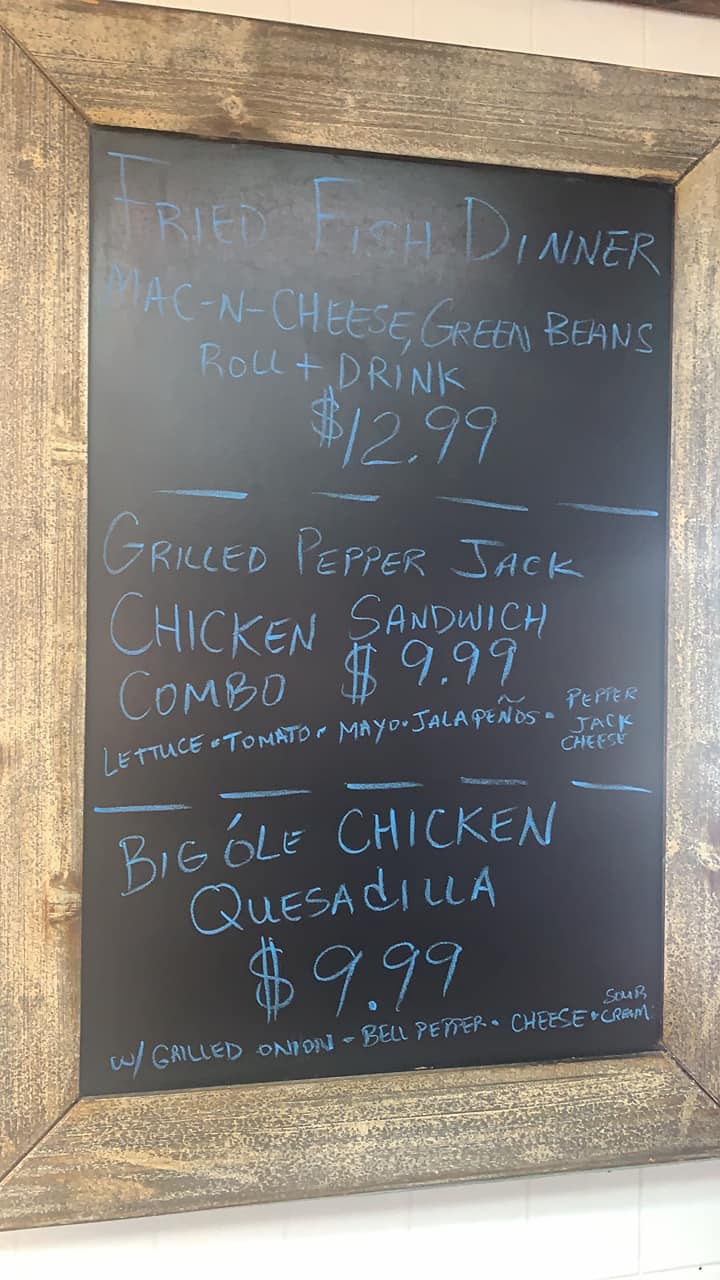 FRIED FISH DINNER
MAC-N-CHEESE, GREEN BEANS
ROLL + DRINK
$12.99
GRILLED PEPPER JACK
CHICKEN SANDWICH
COMBO $9.99
LETTUCE • TOMATO • MAYO • JALAPEÑOS • PEPPER JACK CHEESE
BIG ÓLE CHICKEN
QUESADILLA
$9.99
W/ GRILLED ONION • BELL PEPPER • CHEESE • SOUR CREAM